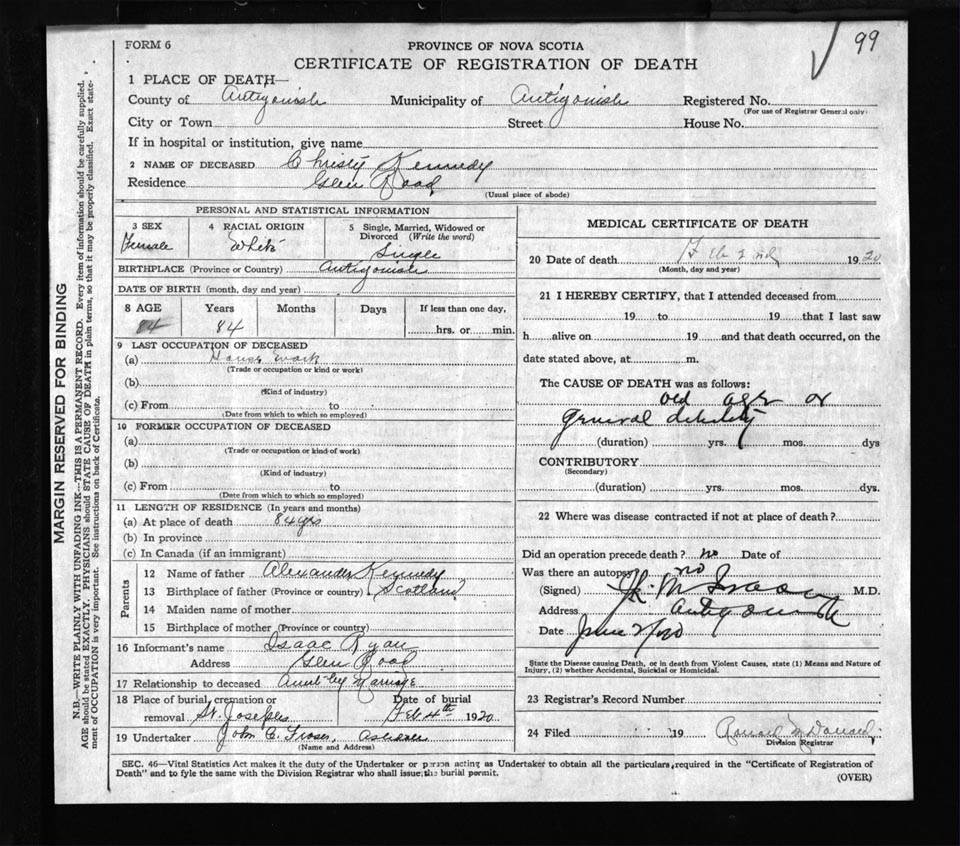 FORM 6
PROVINCE OF NOVA SCOTIA
99
CERTIFICATE OF REGISTRATION OF DEATH
1 PLACE OF DEATH—
County of Antigonish Municipality of Antigonish Registered No.
(For use of Registrar General only)
City or Town Street House No.
If in hospital or institution, give name
2 NAME OF DECEASED Christy Kennedy
Residence Glen Road
(Usual place of abode)
PERSONAL AND STATISTICAL INFORMATION
3 SEX Female
4 RACIAL ORIGIN White
5 Single, Married, Widowed or Divorced (Write the word) Single
BIRTHPLACE (Province or Country) Antigonish
DATE OF BIRTH (month, day and year)
8 AGE Years Months Days If less than one day,
84 84 hrs. or min.
9 LAST OCCUPATION OF DECEASED
(a) House work
(Trade or occupation or kind or work)
(b)
(Kind of industry)
(c) From to
(Date from which to which so employed)
10 FORMER OCCUPATION OF DECEASED
(a)
(Trade or occupation or kind of work)
(b)
(Kind of industry)
(c) From to
(Date from which to which so employed)
11 LENGTH OF RESIDENCE (In years and months)
(a) At place of death 84 yrs
(b) In province
(c) In Canada (if an immigrant)
Parents
12 Name of father Alexander Kennedy
13 Birthplace of father (Province or country) Scotland
14 Maiden name of mother
15 Birthplace of mother (Province or country)
16 Informant's name Isaac Ryan
Address Glen Road
17 Relationship to deceased Aunt-by Marriage
18 Place of burial, cremation or removal St. Josephs
Date of burial Feb 4th 1920
19 Undertaker John C. Fraser,
(Name and Address)
MEDICAL CERTIFICATE OF DEATH
20 Date of death Feb 2nd 1920
(Month, day and year)
21 I HEREBY CERTIFY, that I attended deceased from
19 to 19 that I last saw
h alive on 19 and that death occurred, on the
date stated above, at m.
The CAUSE OF DEATH was as follows:
old age or
general debility
(duration) yrs. mos. dys
CONTRIBUTORY
(Secondary)
(duration) yrs. mos. dys.
22 Where was disease contracted if not at place of death?
Did an operation precede death? no Date of
Was there an autopsy no
(Signed) M.D.
Address Antigonish
Date June
State the Disease causing Death, or in death from Violent Causes, state (1) Means and Nature of
Injury, (2) whether Accidental, Suicidal or Homicidal.
23 Registrar's Record Number
24 Filed 19 Ronald McDonald
Division Registrar
SEC. 46—Vital Statistics Act makes it the duty of the Undertaker or person acting as Undertaker to obtain all the particulars required in the "Certificate of Registration of
Death" and to fyle the same with the Division Registrar who shall issue the burial permit.
(OVER)
MARGIN RESERVED FOR BINDING
N.B.—WRITE PLAINLY WITH UNFADING INK—THIS IS A PERMANENT RECORD. Every item of information should be carefully supplied.
AGE should be stated EXACTLY. PHYSICIANS should STATE CAUSE OF DEATH in plain terms, so that it may be properly classified. Exact state-
ment of OCCUPATION is very important. See instructions on back of Certificate.